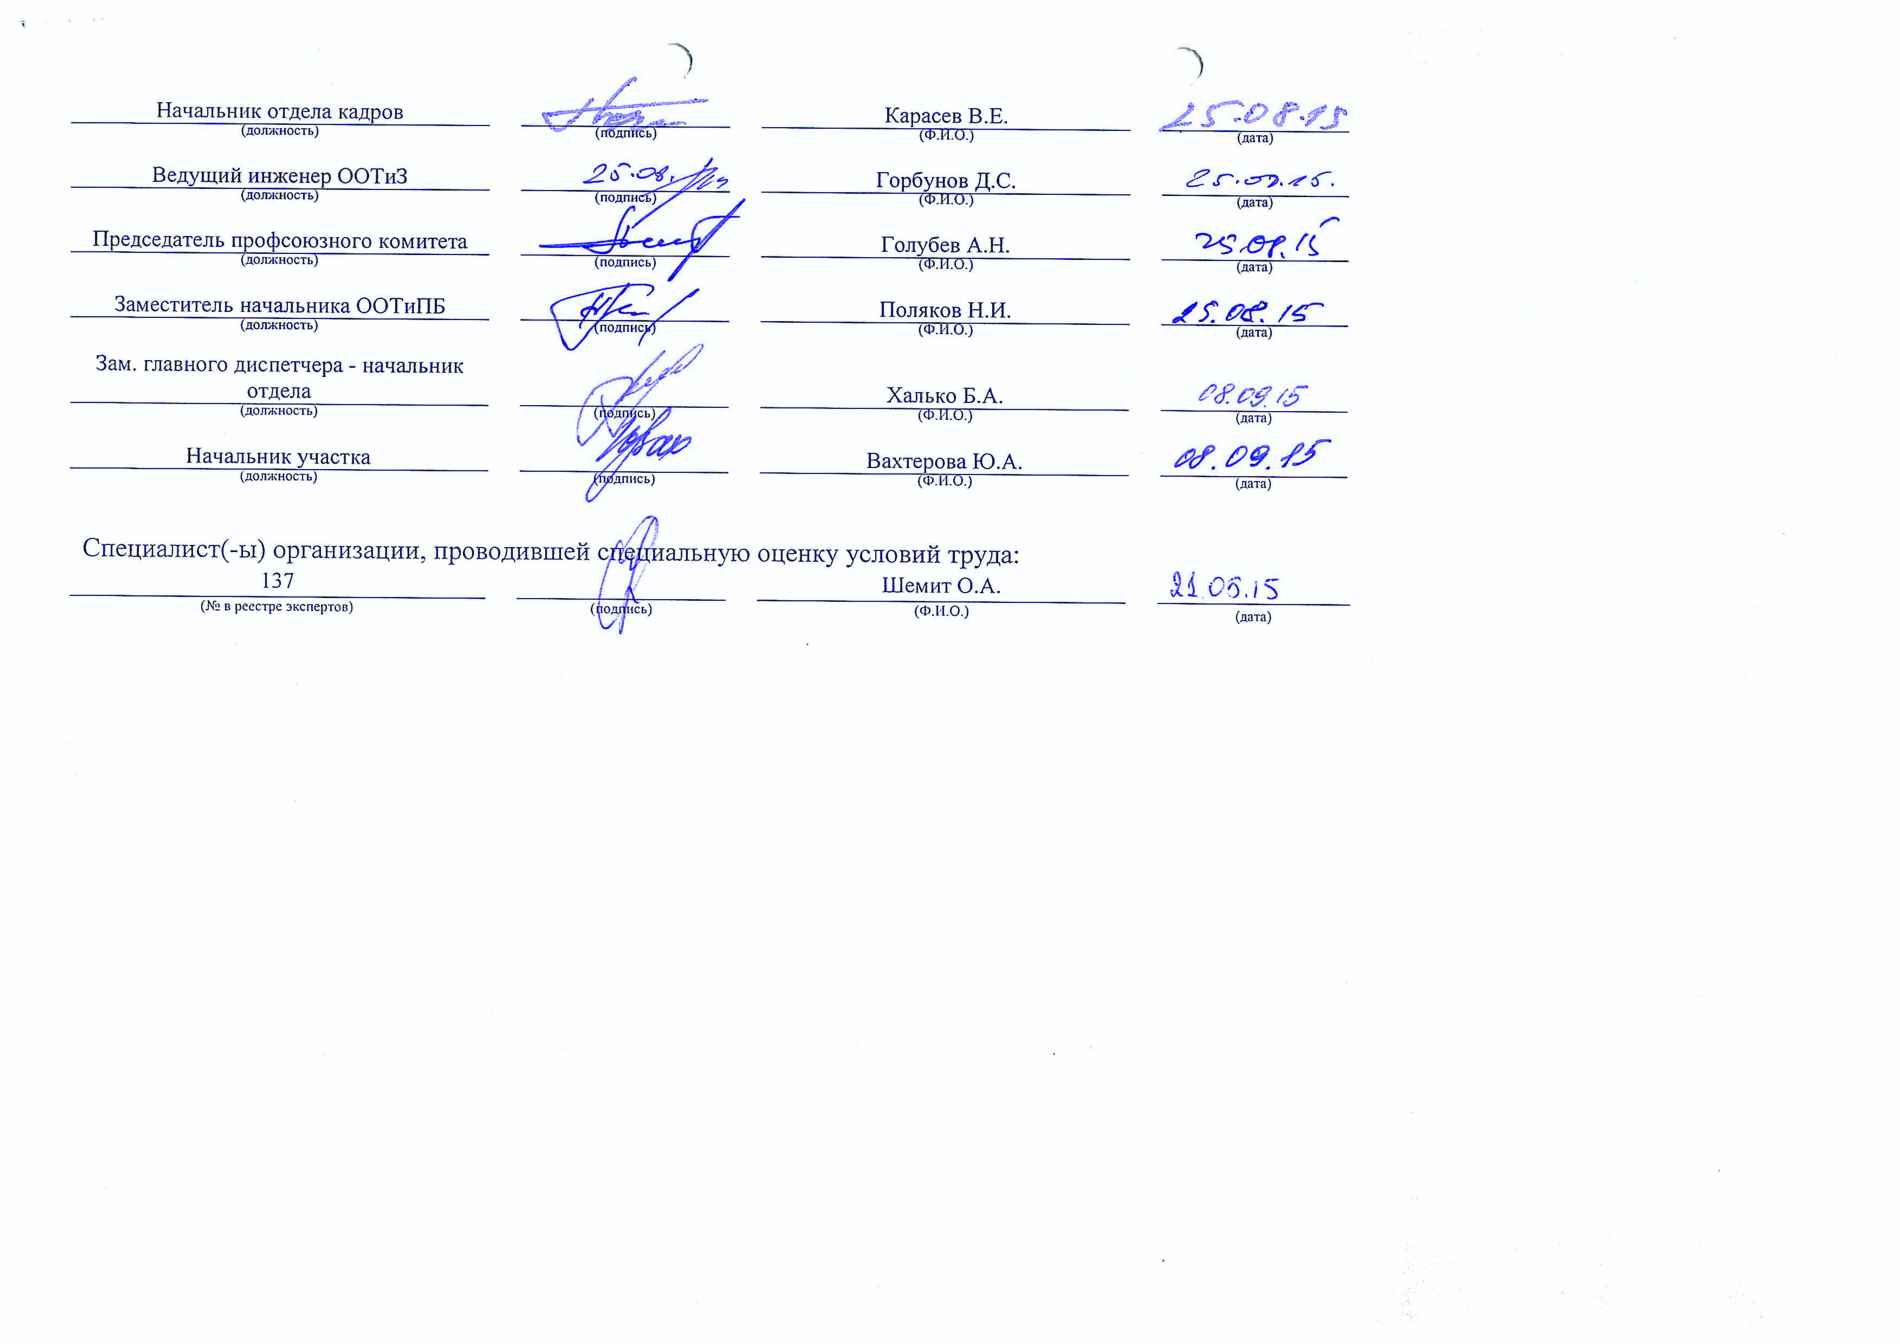 Начальник отдела кадров Карасев В.Е. 25.08.15
(должность) (подпись) (Ф.И.О.) (дата)
Ведущий инженер ООТиЗ 25.08. Горбунов Д.С.
(должность) (подпись) (Ф.И.О.) (дата)
Председатель профсоюзного комитета Голубев А.Н. 25.08.15
(должность) (подпись) (Ф.И.О.) (дата)
Заместитель начальника ООТиПБ Поляков Н.И. 25.08.15
(должность) (подпись) (Ф.И.О.) (дата)
Зам. главного диспетчера - начальник
отдела Халько Б.А. 08.09.15
(должность) (подпись) (Ф.И.О.) (дата)
Начальник участка Вахтерова Ю.А. 08.09.15
(должность) (подпись) (Ф.И.О.) (дата)
Специалист(-ы) организации, проводившей специальную оценку условий труда:
137 Шемит О.А.
(№ в реестре экспертов) (подпись) (Ф.И.О.) (дата)